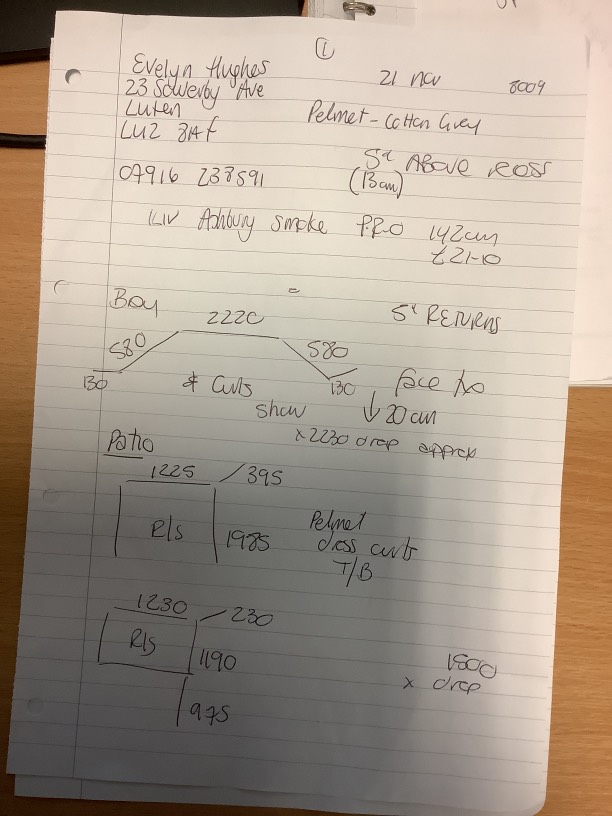 ①
Evelyn Hughes
21 nov
8009
23 Sowerby Ave
Luten
Pelmet - Cotton Grey
LU2 8AF
5" Above ross
(13cm)
07916 238591
Ashbury Smoke P.RO 142cm
£21-10
Bay
2220
5" RETURNS
580
580
130
130
& Curts
show
face to
↓ 20 cm
x2230 drop approx
Patio
1225 / 395
R/s
1985
Pelmet
dress curts
T/B
1230 / 230
R/s
1190
975
1800
x drop